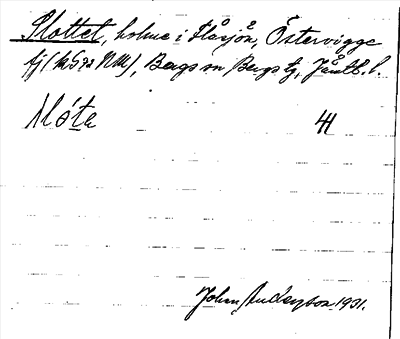 Slottet, holme i Flåsjön, Östervigge
fj (kSrs NM), Bergs sn Bergs tg, Jämtl. l.
Slo̱te 41
Johan Anderson 1931.